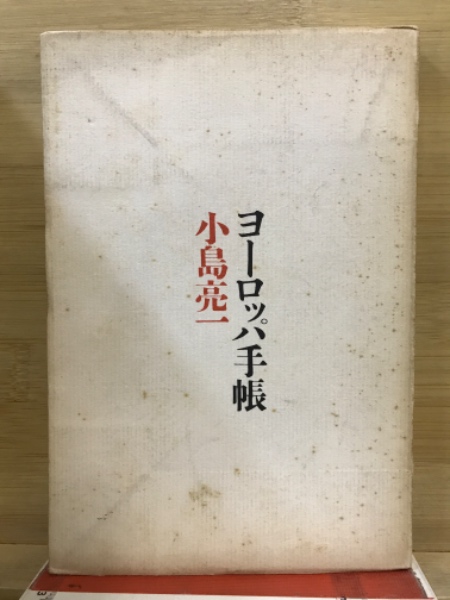 ヨーロッパ手帳
小島亮一